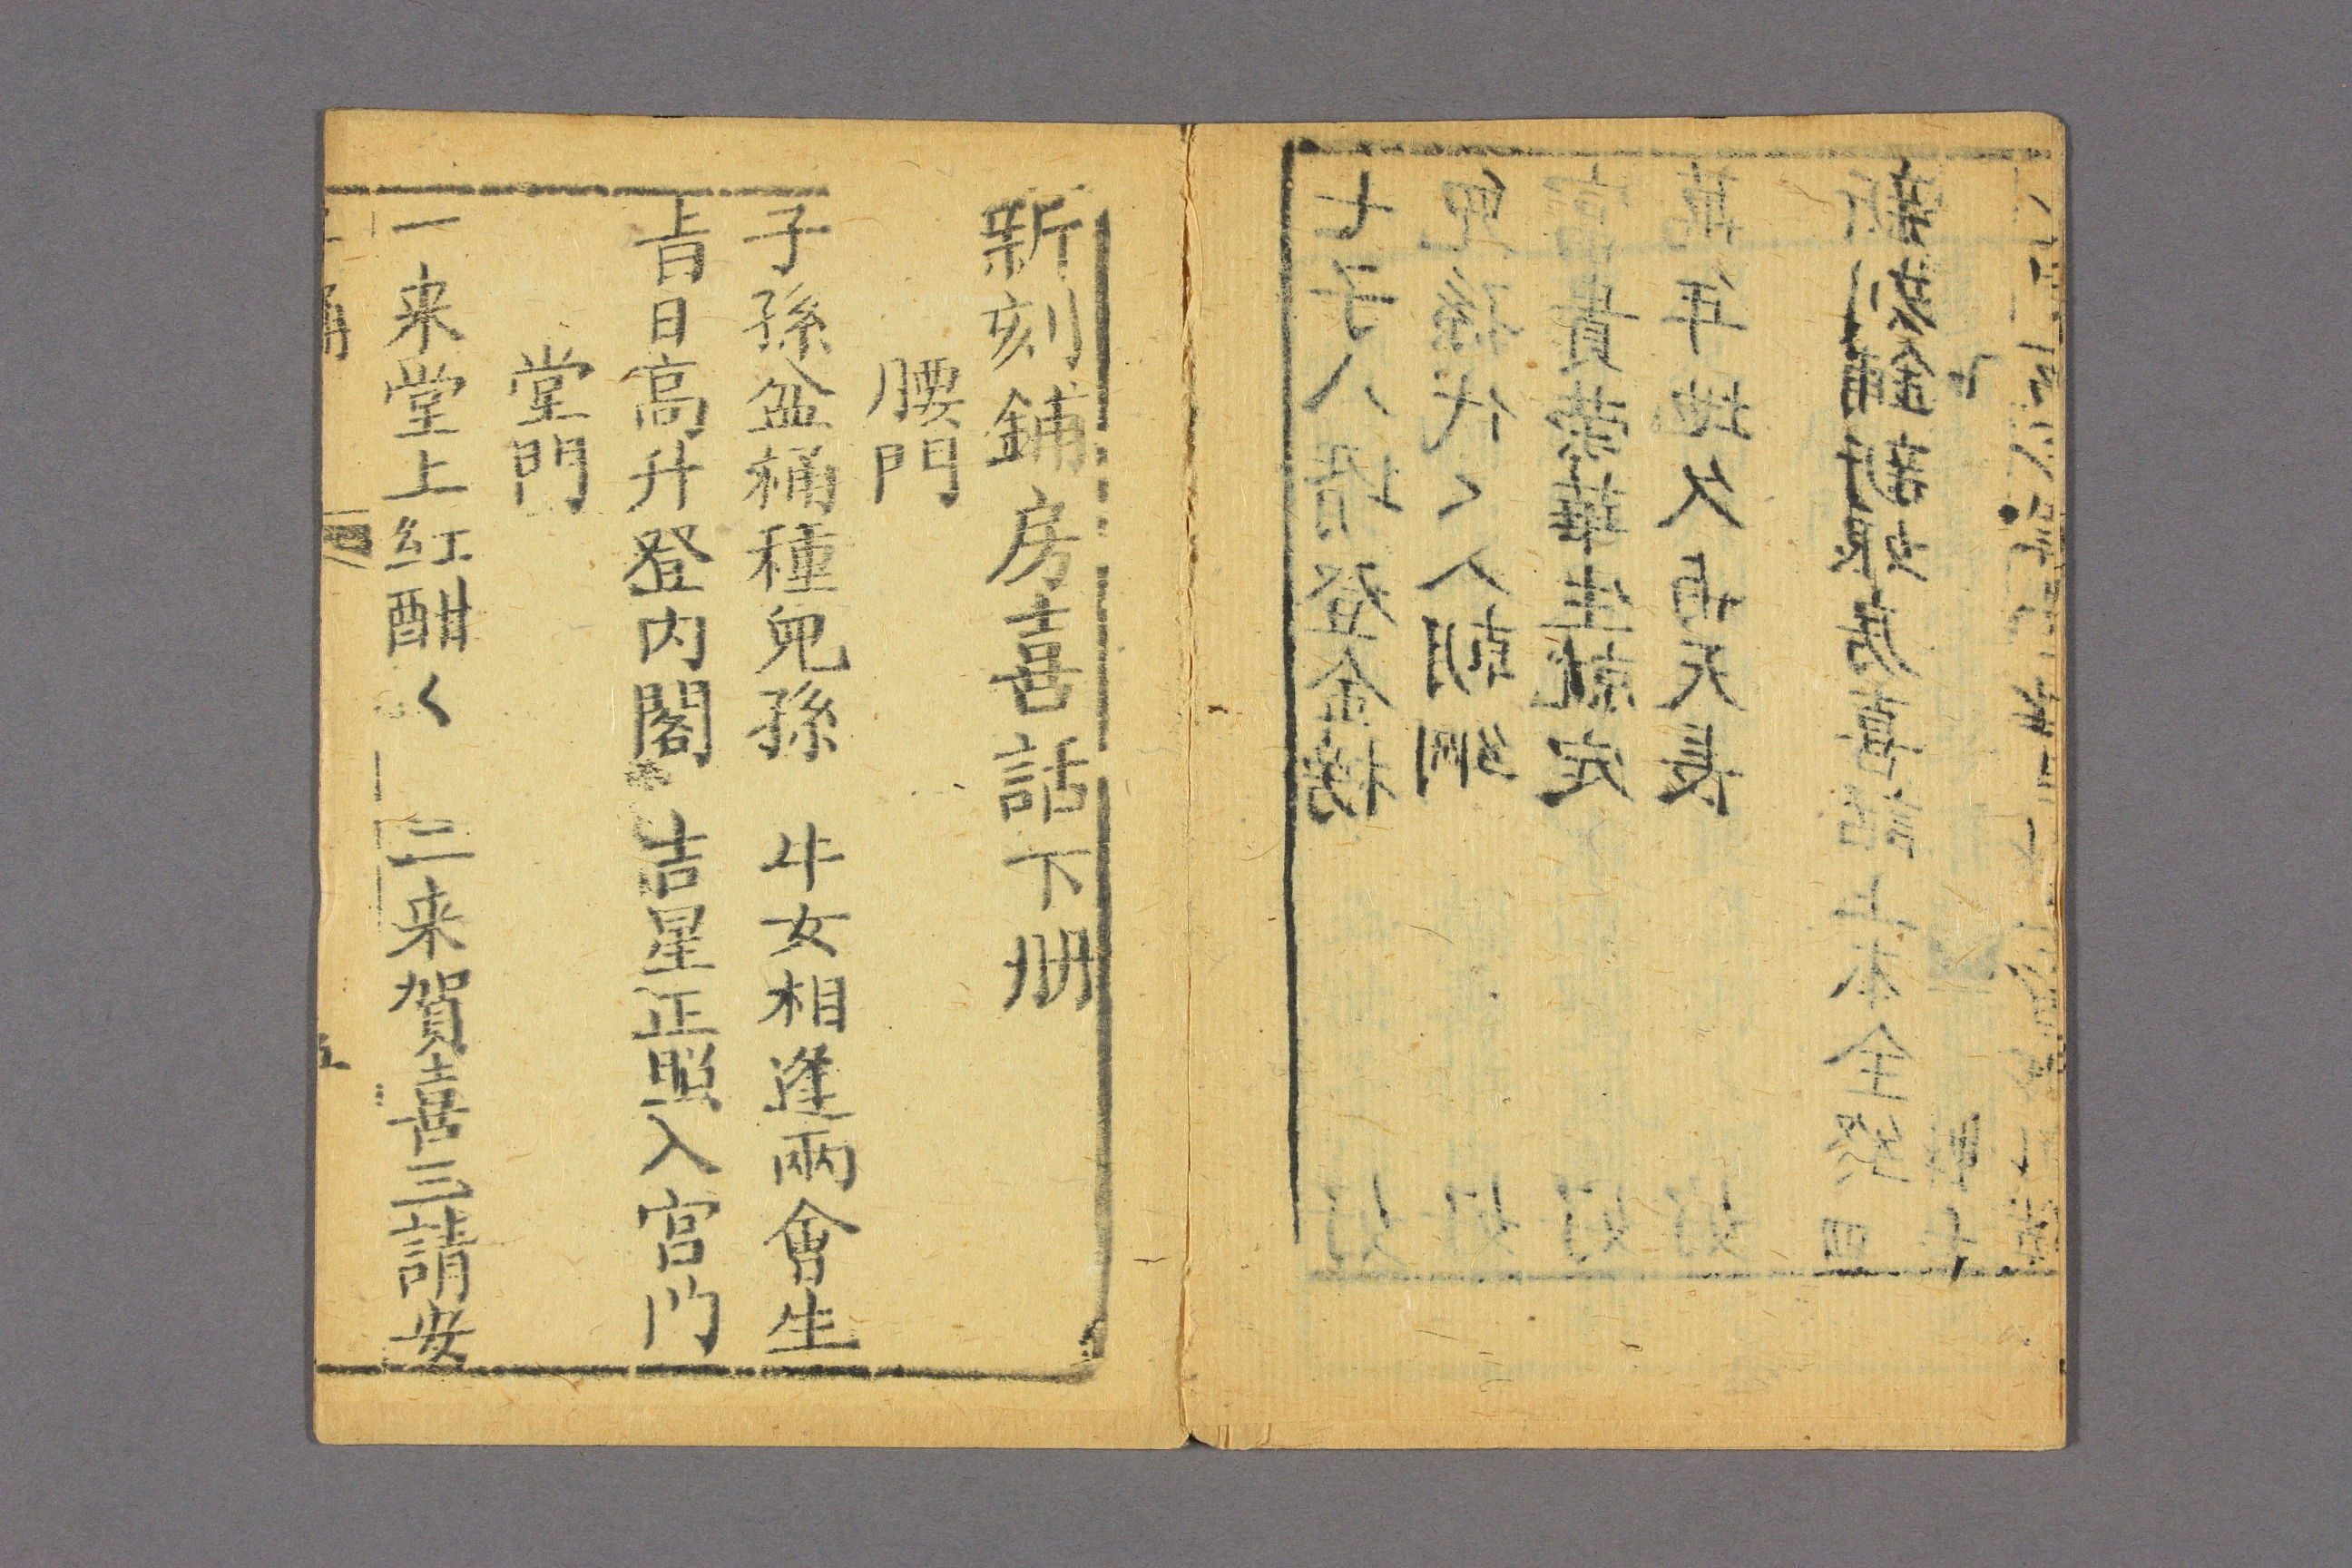 七子八壻登金榜 好
兒孫代〻人朝綱 好
富貴荣華生就定 好
萬年地久有天長 好
房喜話上本全終
新刻鋪房喜話下册
腰門
子孫盆桶種兒孫 牛女相逢兩會生
旹日高升登内閣 吉星正照入宫门
堂門
一来堂上紅酣〻 二来賀喜三請安